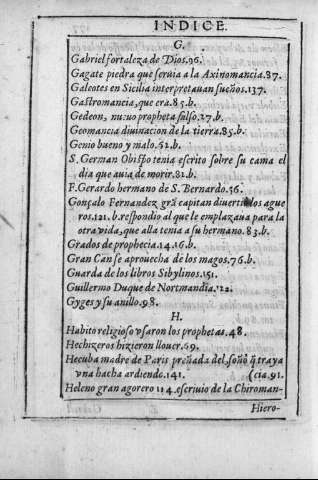 INDICE.
G.
Gabriel fortaleza de Dios.96.
Gagate piedra que seruia a la Axinomancia.87.
Galeotes en Sicilia interpretauan sueños.137.
Gastromancia, que era.85.b.
Gedeon, nueuo propheta falso.27.b.
Geomancia diuinacion de la tierra.85.b.
Genio bueno y malo.62.b.
S. German Obispo tenia escrito sobre su cama el
dia que auia de morir.81.b.
F. Gerardo hermano de S. Bernardo.56.
Gonçalo Fernandez grã capitan diuertia los ague
ros.121.b.respondio al que le emplazaua para la
otra vida, que alla tenia a su hermano.83.b.
Grados de prophecia.14.16.b.
Gran Can se aprouecha de los magos.76.b.
Guarda de los libros Sibylinos.151.
Guillermo Duque de Normandia.122.
Gyges y su anillo.98.
H.
Habito religioso vsaron los prophetas.48.
Hechizeros hizieron llouer.69.
Hecuba madre de Paris preñada del, soñó q̃ traya
vna hacha ardiendo.141. (cia.91.
Heleno gran agorero 114.escriuio de la Chiroman-
Hiero-